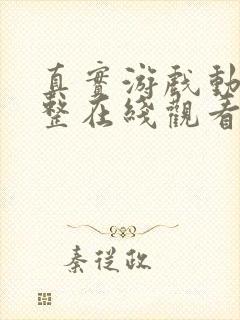 真實游戲動
整在綫觀看
秦從政